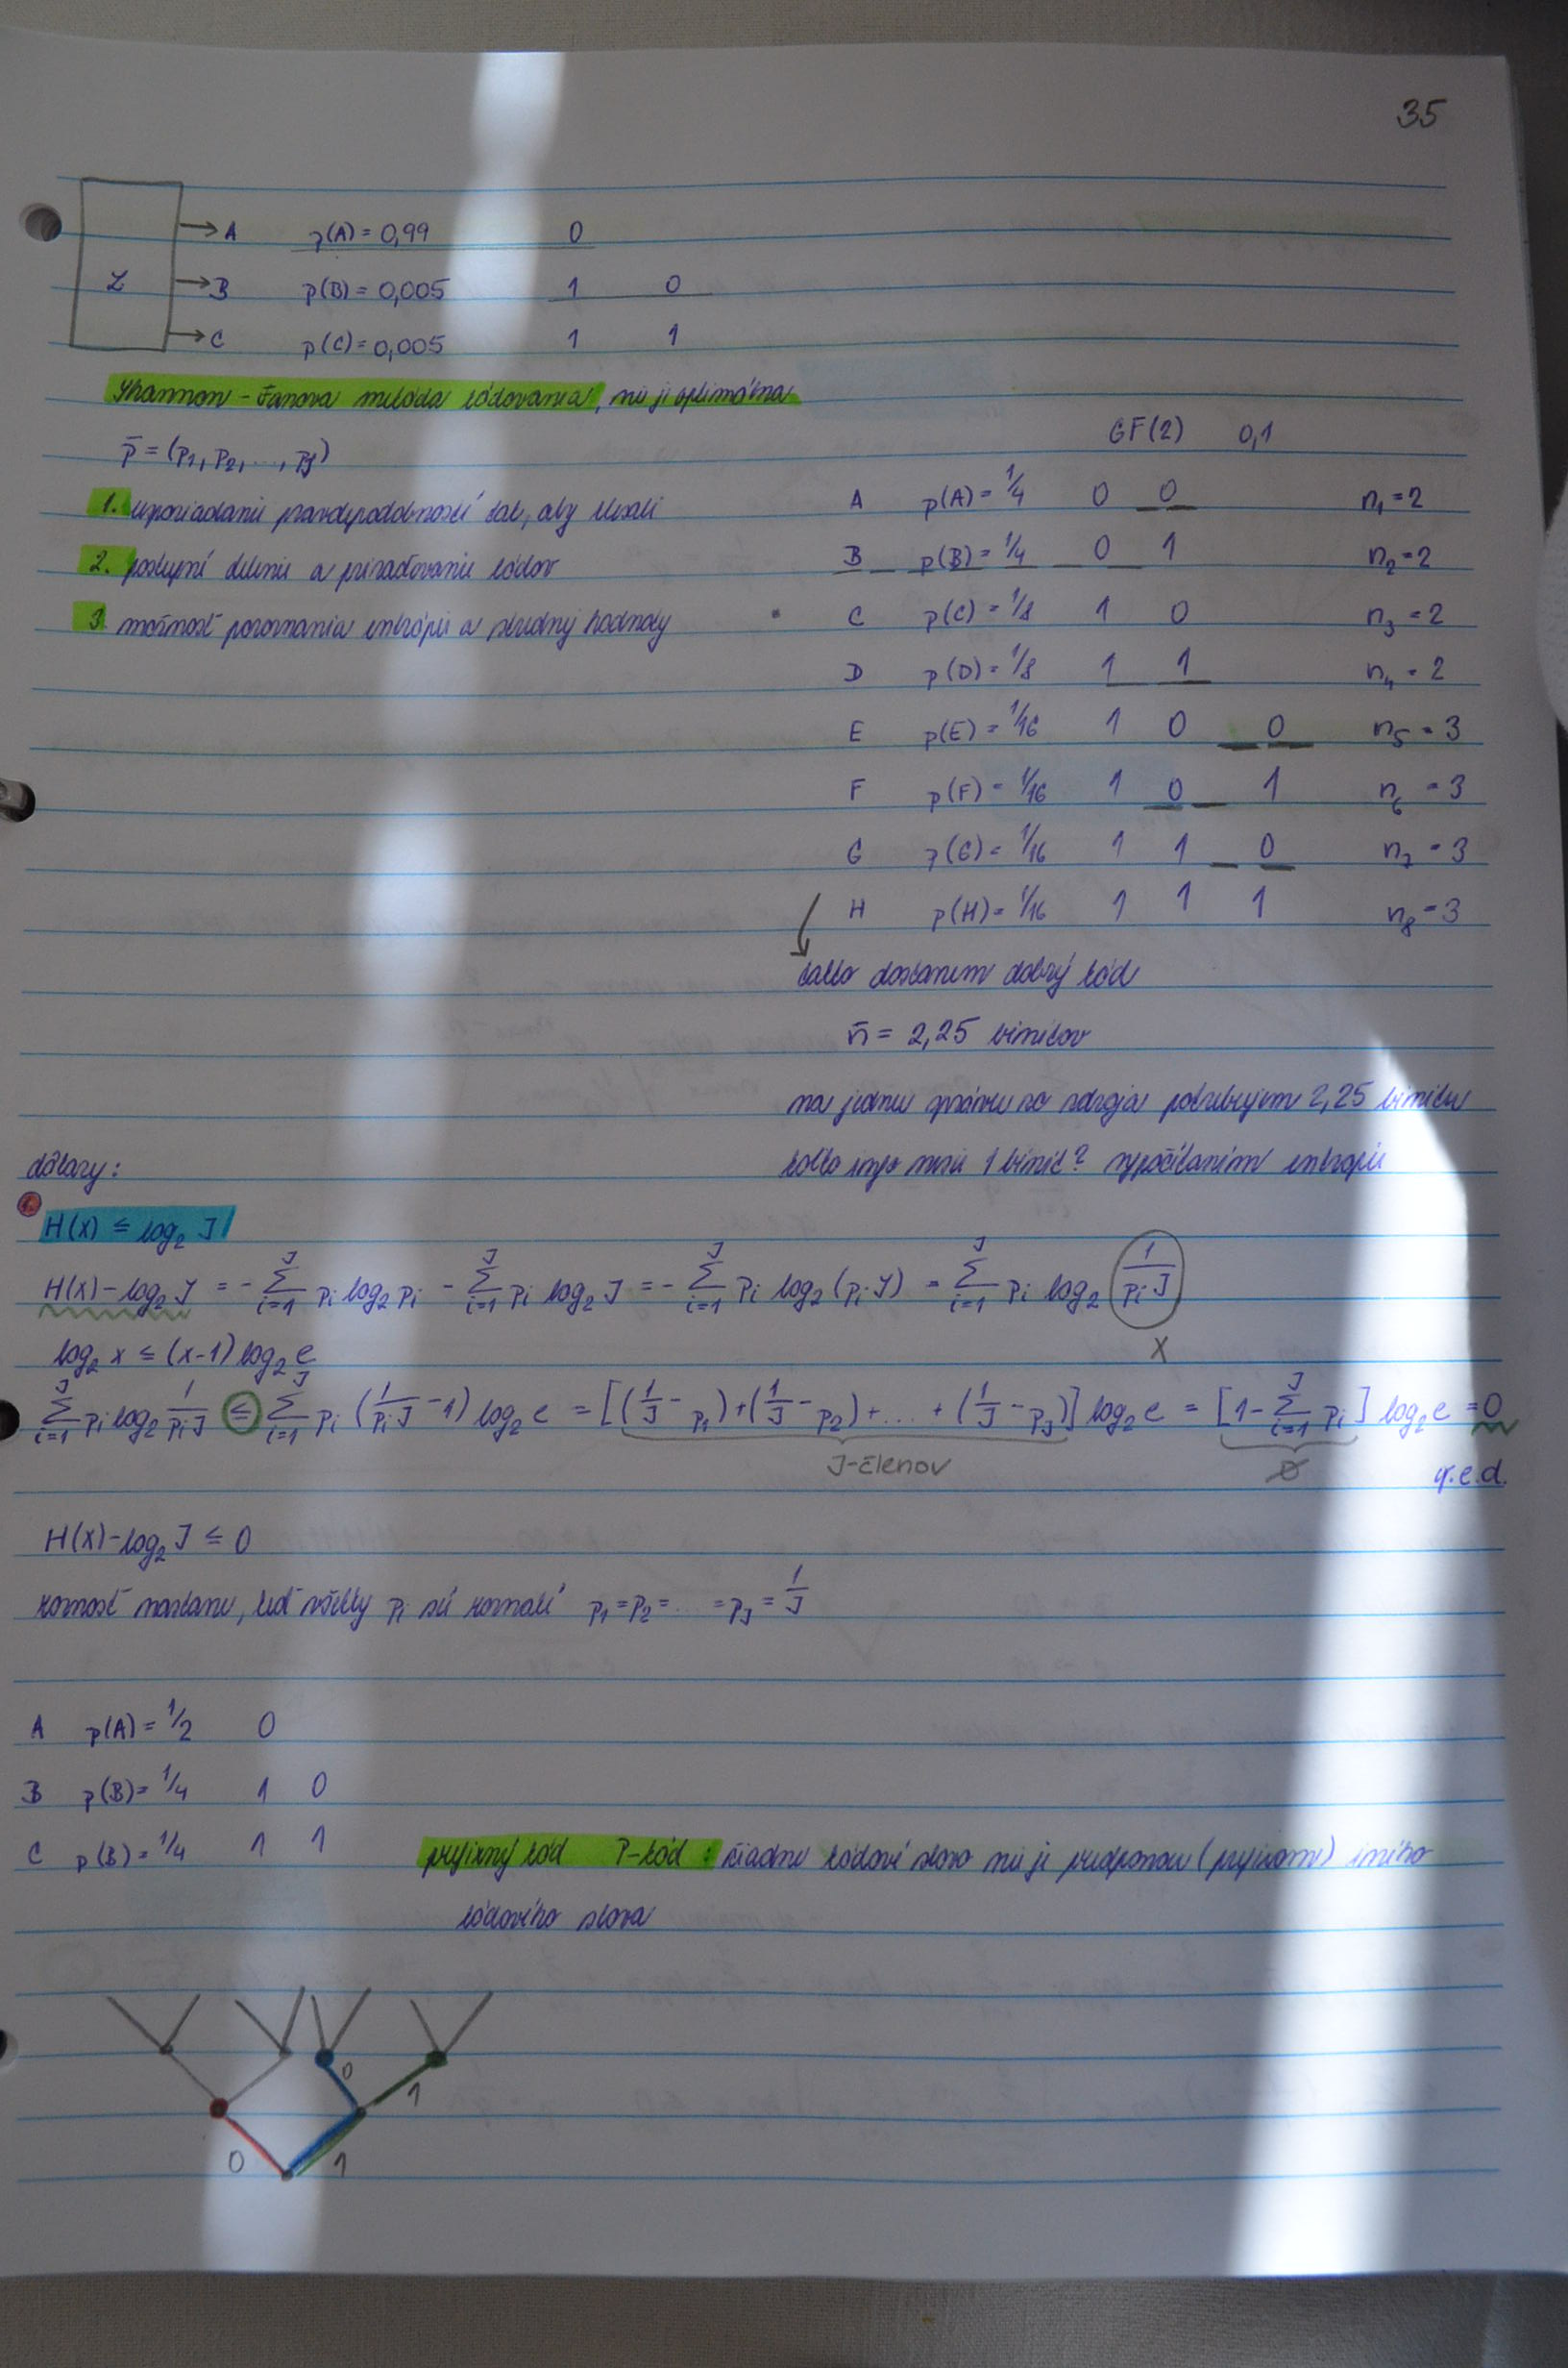 35
Z → A p(A) = 0,99 0
→ B p(B) = 0,005 1 0
→ C p(C) = 0,005 1 1
Shannon - Fanova metóda kódovania, nie je optimálna
p̄ = (p₁, p₂, ..., p_J)
1. usporiadanie pravdepodobností tak, aby klesali
2. postupné delenie a priraďovanie kódov
3. možnosť porovnania entrópie a strednej hodnoty
GF(2) 0,1
A p(A) = 1/4 0 0 n₁ = 2
B p(B) = 1/4 0 1 n₂ = 2
C p(C) = 1/8 1 0 n₃ = 2
D p(D) = 1/8 1 1 n₄ = 2
E p(E) = 1/16 1 0 0 n₅ = 3
F p(F) = 1/16 1 0 1 n₆ = 3
G p(G) = 1/16 1 1 0 n₇ = 3
H p(H) = 1/16 1 1 1 n₈ = 3
takto dostanem dobrý kód
n̄ = 2,25 binitov
na jednu správu zo zdroja potrebujem 2,25 binitu
koľko info nesie 1 binit? vypočítaním entrópie
dôkazy:
1.
H(X) ≤ log₂ J
H(X) - log₂ J = - Σ_{i=1}^{J} pᵢ log₂ pᵢ - Σ_{i=1}^{J} pᵢ log₂ J = - Σ_{i=1}^{J} pᵢ log₂ (pᵢ J) = Σ_{i=1}^{J} pᵢ log₂ 1/(pᵢ J)
x
log₂ x ≤ (x-1) log₂ e
Σ_{i=1}^{J} pᵢ log₂ 1/(pᵢ J) ≤ Σ_{i=1}^{J} pᵢ (1/(pᵢ J) - 1) log₂ e = [(1/J - p₁) + (1/J - p₂) + ... + (1/J - p_J)] log₂ e = [1 - Σ_{i=1}^{J} pᵢ] log₂ e = 0
J-členov 0
q.e.d.
H(X) - log₂ J ≤ 0
rovnosť nastane, keď všetky pᵢ sú rovnaké p₁ = p₂ = ... = p_J = 1/J
A p(A) = 1/2 0
B p(B) = 1/4 1 0
C p(B) = 1/4 1 1
prefixný kód P-kód : žiadne kódové slovo nie je predponou (prefixom) iného
kódového slova
0 1
0 1